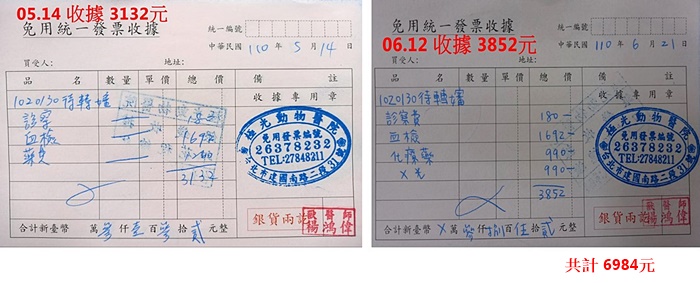 05.14 收據 3132元
免用統一發票收據
統一編號
中華民國 110 年 5 月 14 日
買受人: 地址:
品名 數量 單價 總價 備註
收據專用章
1020130待轉媗
診察
血檢
藥費
3132
極光動物醫院
免用發票編號
26378232
TEL:27848211
台北市建國南路二段31號
銀貨兩訖
獸醫師
楊鴻偉
合計新臺幣 萬 參 仟 壹 百 參 拾 貳 元整
06.12 收據 3852元
免用統一發票收據
統一編號
中華民國 110 年 6 月 21 日
買受人: 地址:
品名 數量 單價 總價 備註
收據專用章
1020130待轉媗
診察費 180-
血檢 1692-
化療藥 990-
X光 990-
3852
極光動物醫院
免用發票編號
26378232
TEL:27848211
台北市建國南路二段31號
銀貨兩訖
獸醫師
楊鴻偉
合計新臺幣 X 萬 參 仟 捌 百 伍 拾 貳 元整
共計 6984元